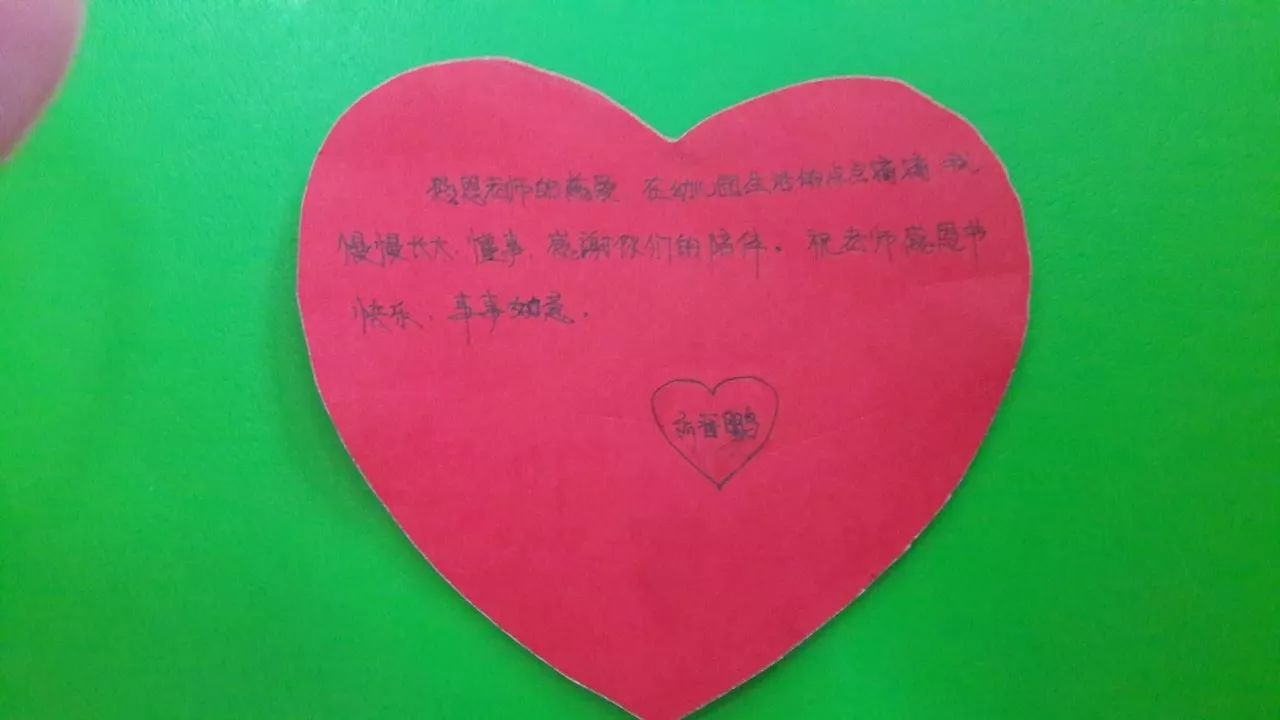 感恩老师的 在幼儿园生活的点点滴滴 我
慢慢长大.懂事.感谢你们的陪伴。祝老师感恩节
快乐.事事如意.
鹏